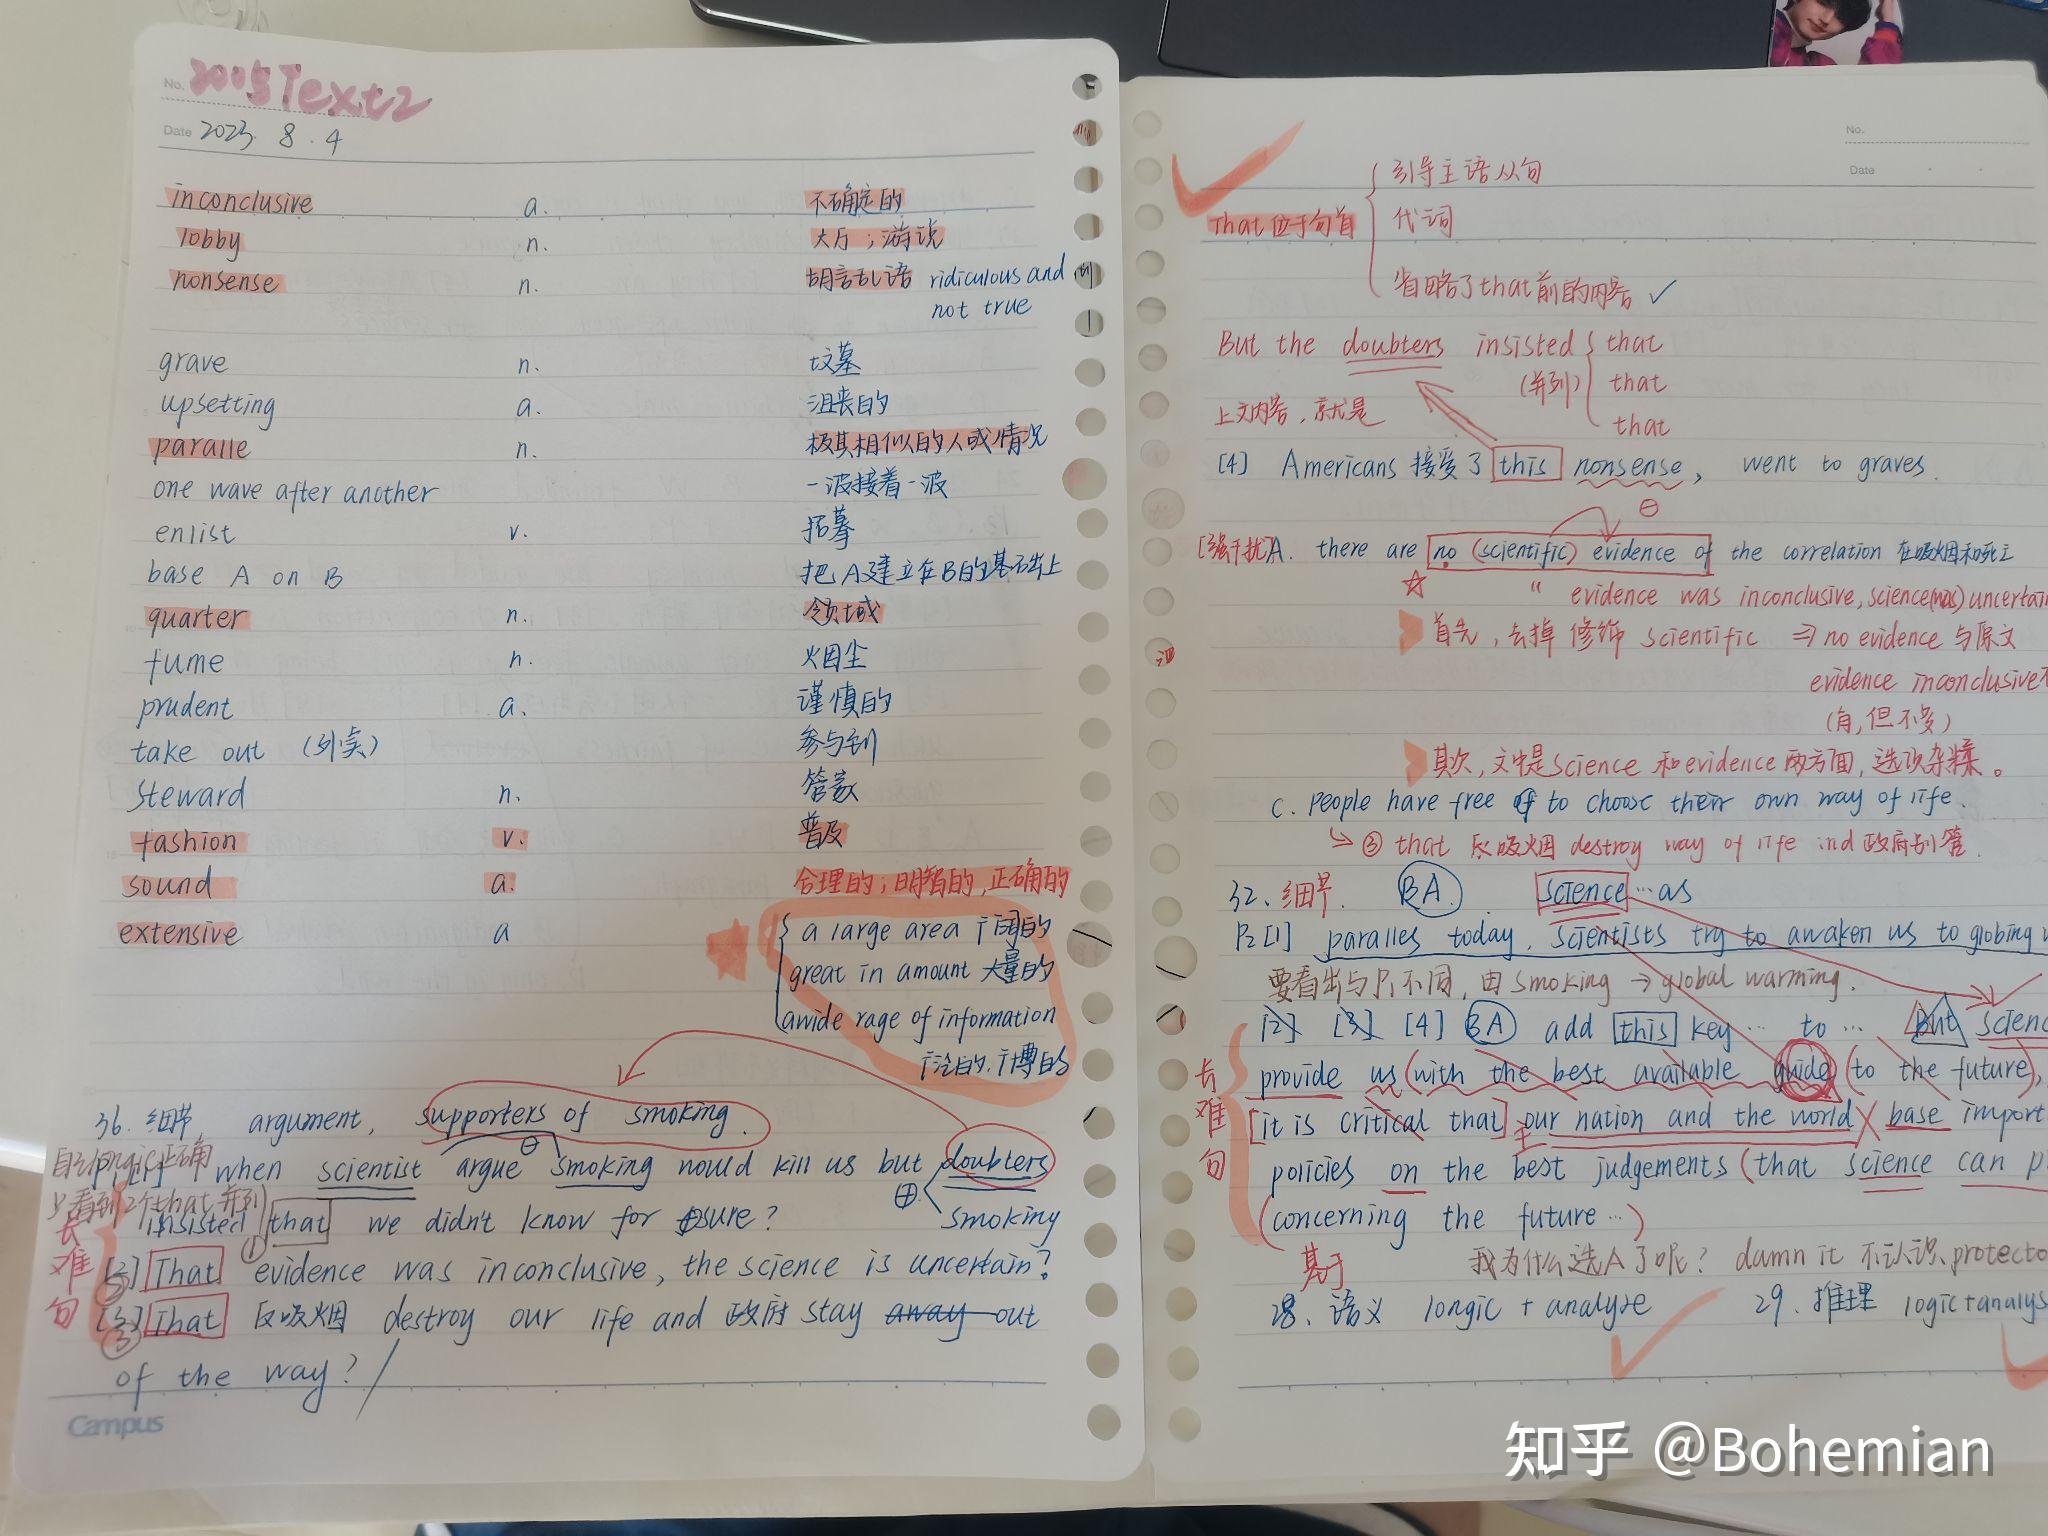 No. 2005 Text2
Date 2023. 8. 4
inconclusive a. 不确定的
lobby n. 大厅；游说
nonsense n. 胡言乱语 ridiculous and
not true
grave n. 坟墓
upsetting a. 沮丧的
paralle n. 极其相似的人或情况
one wave after another 一波接着一波
enlist v. 招募
base A on B 把A建立在B的基础上
quarter n. 领域
fume n. 烟尘
prudent a. 谨慎的
take out (外卖) 参与到
steward n. 管家
fashion v. 普及
sound a. 合理的；明智的，正确的
extensive a a large area 广阔的
great in amount 大量的
a wide rage of information
广泛的，广博的
36. 细节， argument, supporters of smoking.
when scientist argue smoking would kill us but doubters
只看到2个that 并列
insisted that we didn't know for sure? smoking
[2] That evidence was inconclusive, the science is uncertain?
[3] That 反吸烟 destroy our life and 政府 stay away out
of the way?
长难句
Campus
No.
Date
引导主语从句
That位于句首 代词
省略了that前的内容 ✓
But the doubters insisted that
(并列) that
上文内容，就是 that
[4] Americans 接受了 this nonsense, went to graves.
[强干扰]A. there are no (scientific) evidence of the correlation 在吸烟和死亡
" evidence was inconclusive, science(was) uncertain
首先，去掉修饰 scientific ⇒ no evidence 与原文
evidence inconclusive
(有，但不多)
其次，文中是science和evidence两方面，选项杂糅。
C. People have free of to choose their own way of life.
↳ ③ that 反吸烟 destroy way of life and 政府别管.
32. 细节. BA. science … as
P2 [1] paralles today, scientists try to awaken us to globing
要看出与P1不同，由smoking → global warming.
[2] [3] [4] BA add this key … to … But science
provide us (with the best available guide (to the future),
[it is critical that] our nation and the world base import
policies on the best judgements (that science can p
(concerning the future …)
长难句
基于 我为什么选A了呢? damn it 不认识 protecto
28. 语义 longic + analyze 29. 推理 logic+analys
知乎 @Bohemian